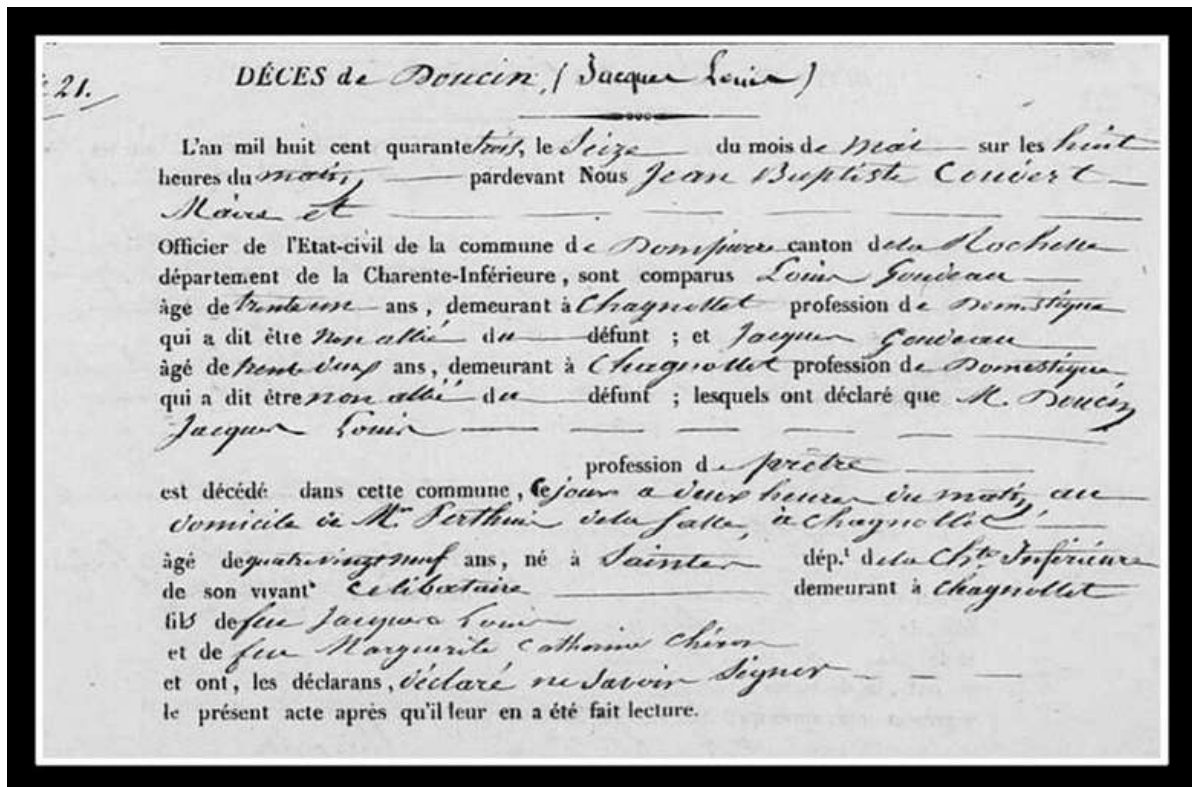 21.
DÉCES de Doucin, (Jacques Louis)
L'an mil huit cent quarante trois, le Seize du mois de Mai sur les huit
heures du matin, pardevant Nous Jean Baptiste Couvert
Maire et
Officier de l'Etat-civil de la commune de Dompierre canton de la Rochelle
département de la Charente-Inférieure, sont comparus Louis Goudeau
âgé de trente un ans, demeurant à Chagnollet profession de Domestique
qui a dit être non allié du défunt ; et Jacques Goudeau
âgé de trente deux ans, demeurant à Chagnollet profession de Domestique
qui a dit être non allié du défunt ; lesquels ont déclaré que M. Doucin
Jacques Louis
profession de prêtre
est décédé dans cette commune, ce jour a deux heures du matin, au
domicile de Mr de la Salle, à Chagnollet,
âgé de quatre vingt neuf ans, né à Saintes dép.t de la Ch.te Inférieure
de son vivant celibataire demeurant à Chagnollet
fils de feu Jacques Louis
et de feu Marguerite Catherine Chéron
et ont, les déclarans, déclaré ne savoir Signer
le présent acte après qu'il leur en a été fait lecture.